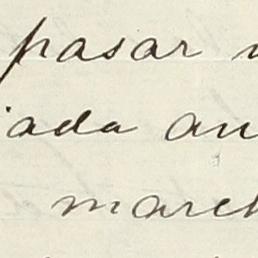 pasar
iada an
march